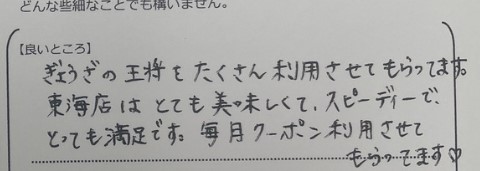 どんな些細なことでも構いません。
【良いところ】
ぎょうざの王将をたくさん利用させてもらってます。
東海店はとても美味しくて、スピーディーで、
とっても満足です。毎月クーポン利用させて
もらってます♡